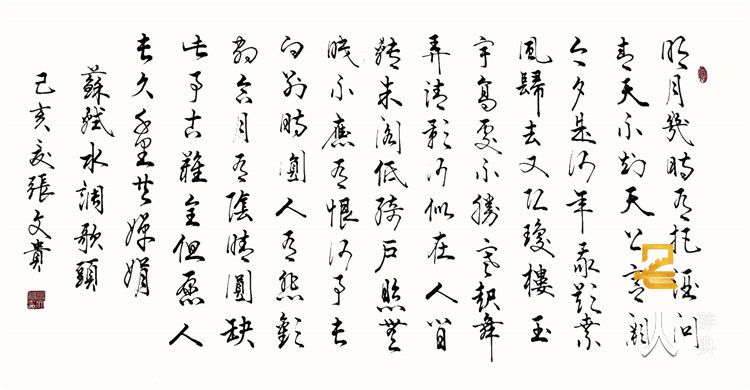 明月幾時有把酒问
青天不知天上宫闕
今夕是何年我欲乘
風歸去又恐瓊樓玉
宇高處不勝寒起舞
弄清影何似在人間
轉朱閣低綺户照無
眠不應有恨何事長
向別時圓人有悲歡
離合月有陰晴圓缺
此事古難全但願人
長久千里共嬋娟
蘇軾水調歌頭
己亥夏張文貴